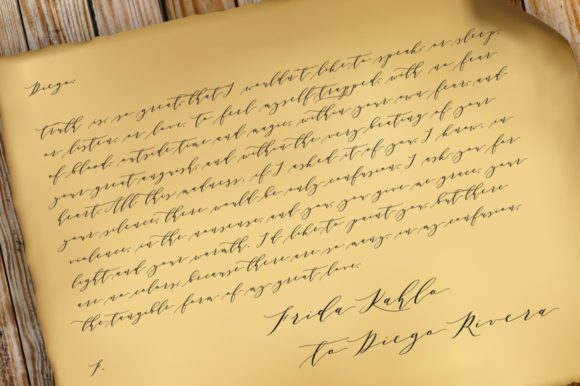 Diego:
truth is, so great that I wouldn't like to speak, or sleep,
or listen, or love. to feel myself trapped, with no fear
of blood, outside time and magic, within your own fear, and
your great anguish, and within the very beating of your
heart. All this madness, if I asked it of you, I know, in
your silence, there would be only confusion. I ask you for
violence, in the nonsense, and you, you give me grace, your
light and your warmth. I'd like to paint you, but there
are no colors, because there are so many, in my confusion,
the tangible form of my great love.
Frida Kahlo
to Diego Rivera
F.